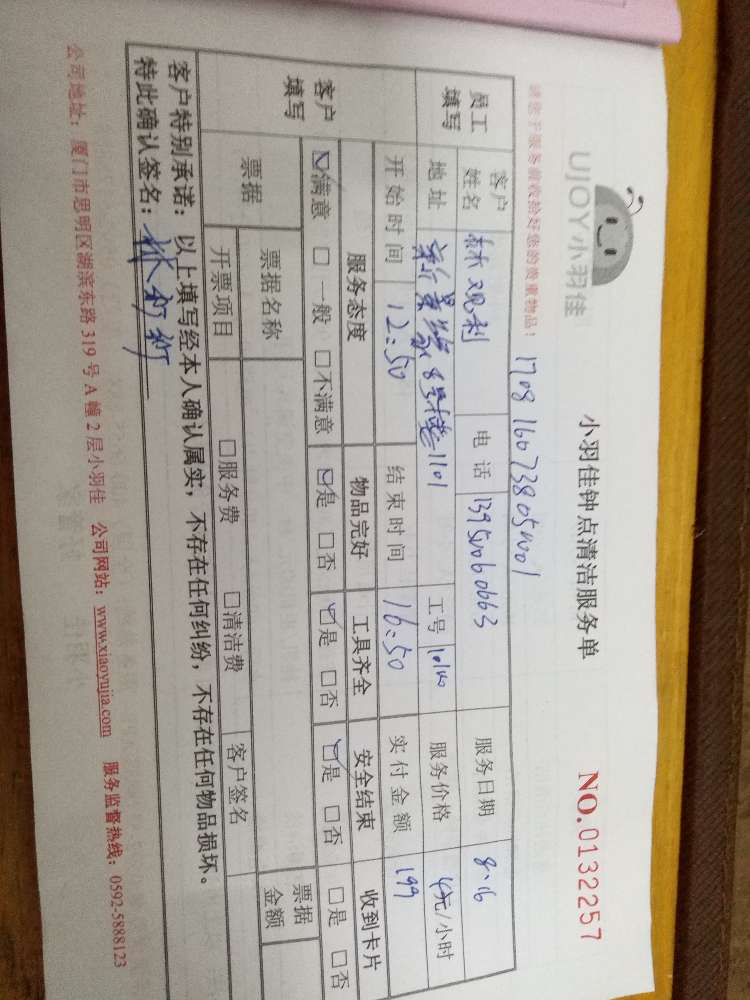 UJOY小羽佳
小羽佳钟点清洁服务单
NO.0132257
请您于服务前收拾好您的贵重物品！
员工填写
客户姓名 林观利 电话 13950060663 服务日期 8.16
地址 8 1101 工号 服务价格 元/小时
开始时间 12:50 结束时间 16:50 实付金额 199
客户填写
服务态度 物品完好 工具齐全 安全结束 收到卡片
☑满意 □一般 □不满意 ☑是 □否 ☑是 □否 ☑是 □否 □是 □否
票据 票据名称 票据金额
开票项目 □服务费 □清洁费 客户签名
客户特别承诺：以上填写经本人确认属实，不存在任何纠纷，不存在任何物品损坏。
特此确认签名：
公司地址：厦门市思明区湖滨东路 319 号 A 幢 2 层小羽佳 公司网站：www.xiaoyujia.com 服务监督热线：0592-5888123